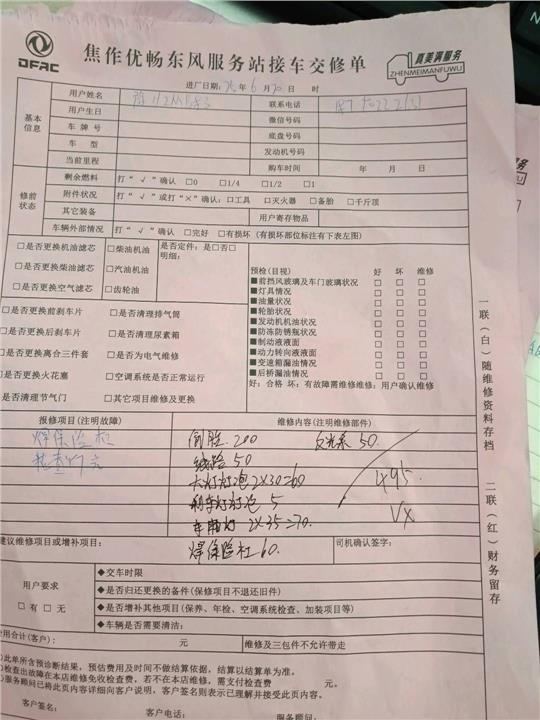 DFAC
焦作优畅东风服务站接车交修单
真美满服务
ZHENMEIMANFUWU
进厂日期: 年 6 月 20 日 时
用户姓名 联系电话
基本信息
用户生日 微信号码
车牌号 底盘号码
车型 发动机号码
当前里程 购车时间 年 月 日
修前状态
剩余燃料 打“√”确认 □0 □1/4 □1/2 □1
附件状况 打“√”或打“×”确认: □工具 □灭火器 □备胎 □千斤顶
其它装备 用户寄存物品
车辆外部情况 打“√”确认 □完好 □有损坏 (有损坏部位标注有下表左图)
□是否更换机油滤芯 □柴油机油 是否定件: 是□否□
明细:
□是否更换柴油滤芯 □汽油机油
□是否更换空气滤芯 □齿轮油
预检(目视) 好 坏 维修
■前挡风玻璃及车门玻璃状况 □ □ □
■灯具情况 □ □ □
■油量状况 □ □ □
■轮胎状况 □ □ □
■发动机机油状况 □ □ □
■防冻防锈瓶状况 □ □ □
■制动液液面 □ □ □
■动力转向液液面 □ □ □
■变速箱漏油情况 □ □ □
■后桥漏油情况 □ □ □
好: 合格 坏: 有故障需维修维修: 用户确认维修
□是否更换前刹车片 □是否清理排气筒
□是否更换后刹车片 □是否清理尿素箱
□是否更换离合三件套 □是否为电气维修
□是否更换火花塞 □空调系统是否正常运行
是否清理节气门 □其它项目维修及更换
一联(白)随维修资料存档
二联(红)财务留存
报修项目(注明故障) 维修内容(注明维修部件)
焊保险杠 倒胎 200 反光条 50
检查灯光 线路 50
大灯灯泡 2×30=60
刹车灯灯泡 5
2×35=70
495
焊保险杠 60
建议维修项目或增补项目: 司机确认签字:
用户要求
□有 □无
◆交车时限
◆是否归还更换的备件(保修项目不退还旧件)
◆是否增补其他项目(保养、年检、空调系统检查、加装项目等)
◆车辆是否需要清洁:
用合计(客户): 元 维修及三包件不允许带走
)此单所含预诊断结果, 预估费用及时间不做结算依据, 结算以结算单为准。
)检查出故障在本店维修免收检查费, 若不在本店维修, 需支付检查费 元。
)服务顾问已将此页内容详细向客户说明, 客户签名则表示已理解并接受此页内容。
客户签名: 客户电话: 服务顾问: